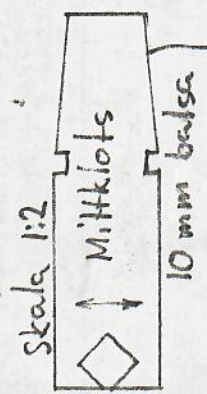 Skala 1:2
Mittklots
10 mm balsa